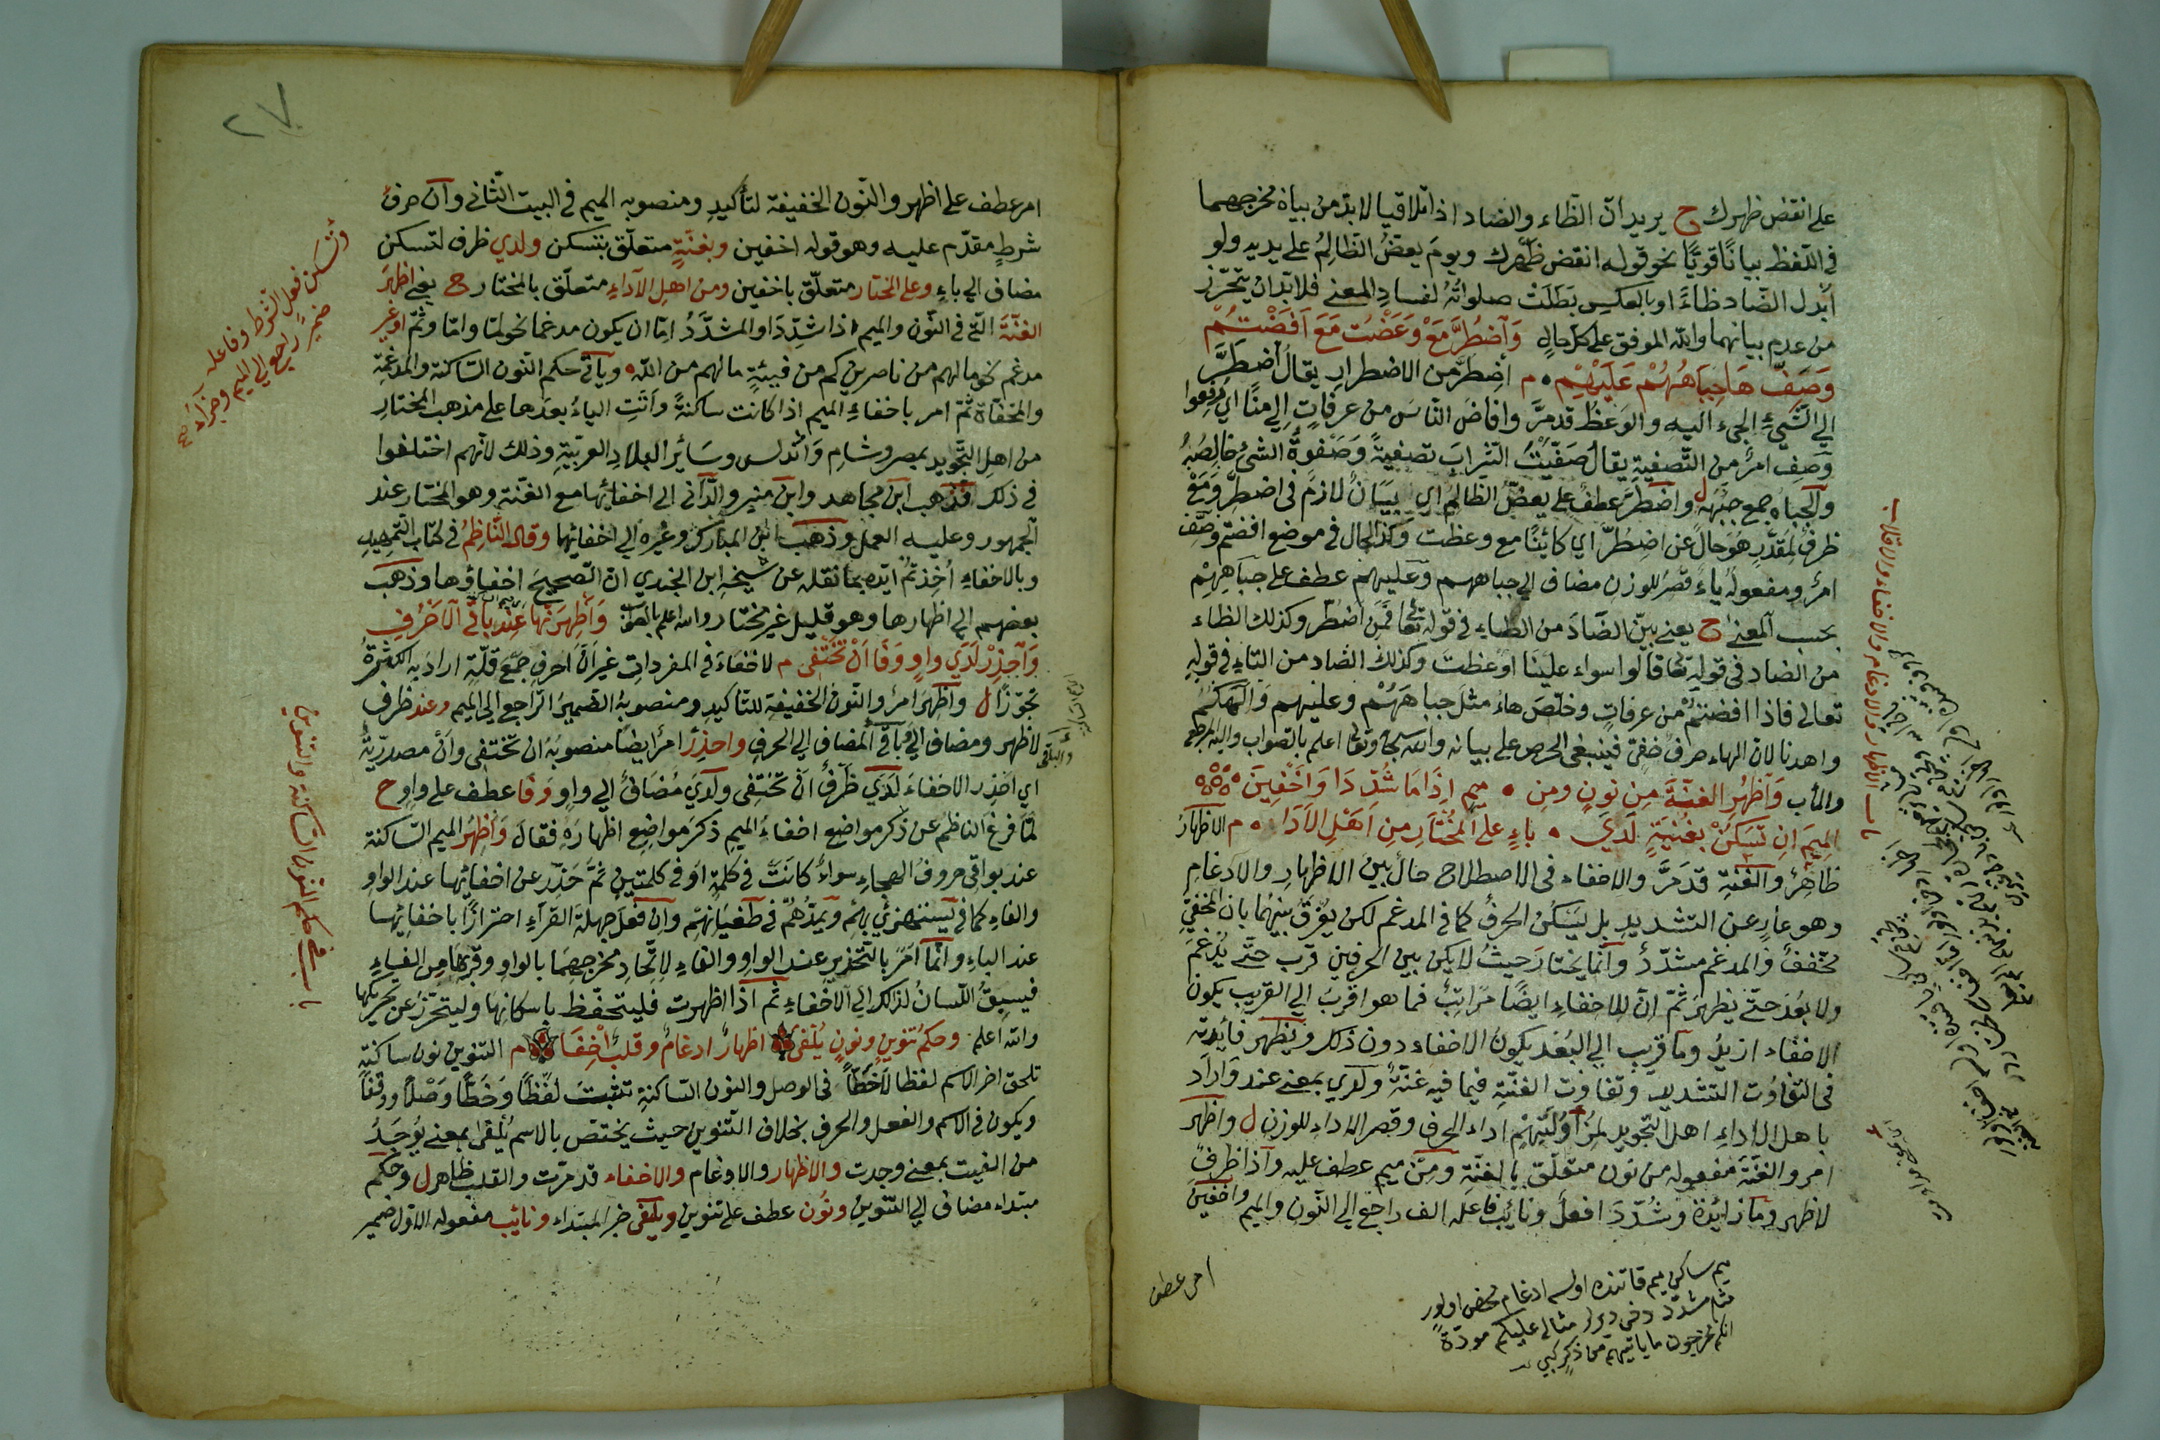 على انقض ظهرك ح يريد ان الظاء والضاد اذا تلاقيا لابد من بيان مخرجهما
في اللفظ بيانا قويا نحو قوله انقض ظهرك ويوم يعض الظالم على يديه ولو
ابدل الضاد ظاء او بالعكس بطلت صلواته لفساد المعنى فلا بد ان يتحرز
من عدم بيانهما والله الموفق على كل حال وَاضْطُرَّ مَعْ وَعَظْتَ مَعَ اَفَضْتُمْ
وَصَفِّ هَا جِبَاهُهُمْ عَلَيْهِمْ م اضطر من الاضطرار يقال اضطر
الى الشيء الجيء اليه والوعظ قد مر وافاض الناس من عرفات الى منا اي دفعوا
وصف امر من التصفية يقال صفيت الشراب تصفية وصفوة الشئ خالصه
والجباه جمع جبهة ل واضطر عطف على يعض الظالم اي بيان لازم في اضطر ومع
ظرف لمقدر هو حال عن اضطر اي كائنا مع وعظت وكذا الحال في موضع افضتم وصف
امر ومفعوله ياء قصر للوزن مضاف الى جباههم وعليهم عطف على جباههم
بحسب المعنى ح يعني بين الضاد من الطاء في قوله تعا فمن اضطر وكذلك الظاء
من الضاد في قوله تعا قالوا سواء علينا اوعظت وكذلك الضاد من التاء في قوله
تعالى فاذا افضتم من عرفات وخلص هاء مثل جباههم وعليهم والهكم
واهدنا لان الهاء حرف خفي فينبغي الحرص على بيانه والله سبحانه وتعالى اعلم بالصواب واليه المرجع
والمأب وَاَظْهِرِ الغُنَّةَ مِنْ نُونٍ ومِنْ ميمٍ اِذَا مَا شُدِّدَا وَاَخْفِيَنْ
المِيمَ اِنْ تَسْكُنْ بِغُنَّةٍ لَدَى باءٍ على المُخْتَارِ مِنْ اَهْلِ الاَدَا م الاظهار
ظاهر والغنة قد مر والاخفاء في الاصطلاح حال بين الاظهار والادغام
وهو عار عن التشديد بل يسكن الحرف كما في المدغم لكن يفرق بينهما بان المخفي
مخفف والمدغم مشدد وانما يختار حيث لا يكن بين الحرفين قرب حتى يدغم
ولا بعد حتى يظهر ثم ان للاخفاء ايضا مراتب فما هو اقرب الى القريب يكون
الاخفاء ازيد وما قرب الى البعد يكون الاخفاء دون ذلك ويظهر فائدته
في التفاوت التشديد وتفاوت الغنة فيما فيه غنة ولدى بمعنى عند واراد
باهل الاداء اهل التجويد لمزاوليتهم اداء الحرف وقصر الاداء للوزن ل واظهر
امر والغنة مفعوله من نون متعلق بالغنة ومن ميم عطف عليه واذا ظرف
لاظهر وما زائدة وشددا فعل ونائب فاعله الف راجع الى النون والميم واخفين
امر عطف
ميم ساكن ميم قاتنده اولسه ادغام محض اولور
انكم مخرجون ما ياتيهم من ذكر كبي
باب الاظهار والادغام والاخفاء والاقلاب
٢٧
امر عطف على اظهر والنون الخفيفة لتأكيد ومنصوبه الميم في البيت الثاني وان حرف
شرط مقدم عليه وهو قوله اخفين وبغنة متعلق بتسكن ولدى ظرف لتسكن
مضاف الى باء وعلى المختار متعلق باخفين ومن اهل الاداء متعلق بالمختار ح يعني اظهر
الغنة التي في النون والميم اذا شددا والمشدد اما ان يكون مدغما نحو لما واما وثم او غير
مدغم نحو مالهم من ناصرين كم من فيئة مالهم من الله وياتي حكم النون الساكنة والمدغمة
والمخفاة ثم امر باخفاء الميم اذا كانت ساكنة واتت الباء بعدها على مذهب المختار
من اهل التجويد بمصر وشام واندلس وسائر البلاد العربية وذلك لانهم اختلفوا
في ذلك فذهب ابن مجاهد وابن منير والداني الى اخفائها مع الغنة وهو المختار عند
الجمهور وعليه العمل وذهب ابن المبارك وغيره الى اخفائها وقال الناظم في كتاب التمهيد
وبالاخفاء اخذتم ايده بما نقله عن شيخه ابن الجندي ان الصحيح اخفاؤها وذهب
بعضهم الى اظهارها وهو قليل غير مختار والله اعلم بالصواب وَاَظْهِرَنْهَا عِنْدَ بَاقِي الاَحْرُفِ
وَاحْذَرْ لَدَى واوٍ وَفَا اَنْ تَخْتَفِي م لا خفاء في المفردات غير ان احرف جمع قلة اراد به الكثرة
تجوزا ل واظهر امر والنون الخفيفة للتأكيد ومنصوبه الضمير الراجع الى الميم وعند ظرف
لاظهر ومضاف الى باقي المضاف الى الحرف واحذر امر ايضا منصوبه ان تختفي وان مصدرية
اي احذر الاخفاء لدى ظرف ان تختفي ولدى مضاف الى واو وفا عطف على واو ح
لما فرغ الناظم عن ذكر مواضع اخفاء الميم ذكر مواضع اظهاره فقال واظهر الميم الساكنة
عند بواقي حروف الهجاء سواء كانت في كلمة او في كلمتين ثم حذر عن اخفائها عند الواو
والفاء كما في يستهزئ بهم ويمدهم في طغيانهم وان فعل جهلة القراء احترازا باخفائها
عند الباء وانما امر بالتحذير عند الواو والفاء لاتحاد مخرجهما بالواو وقربها من الفاء
فيسبق اللسان لذلك الى الاخفاء ثم اذا اظهرت فليتحفظ باسكانها وليتحرز عن تحريكها
والله اعلم وحكمُ تنوينٍ ونونٍ يُلْفَى اظهارٌ ادغامٌ وقلبٌ اِخْفَا م التنوين نون ساكنة
تلحق اخر الاسم لفظا لا خطا في الوصل والنون الساكنة تثبت لفظا وخطا وصلا ووقفا
ويكون في الاسم والفعل والحرف بخلاف التنوين حيث يختص بالاسم يلفى بمعنى يوجد
من الفيت بمعنى وجدت والاظهار والادغام والاخفاء قد مرت والقلب ظاهر ل وحكم
مبتداء مضاف الى التنوين ونون عطف على تنوين ويلفى خبر المبتداء ونائب مفعوله الاول ضمير
وتسكن فعل الشرط وفاعله
ضمير راجع الى الميم وجزاؤه
باب في حكم النون الساكنة والتنوين